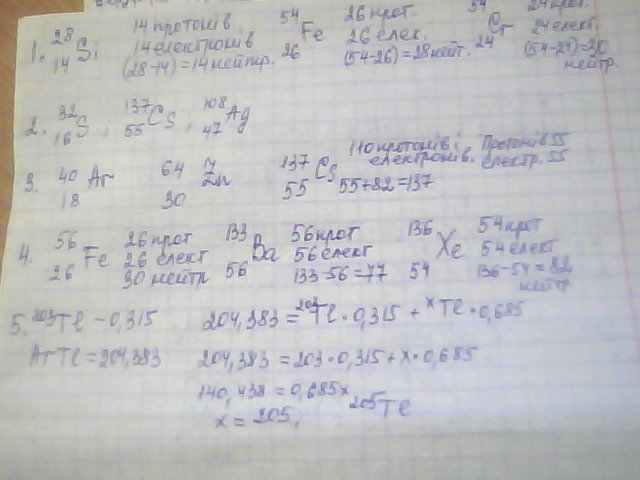 1. 28 14 Si 14 протонів 14 електронів (28-14)=14 нейтр. 54 26 Fe 26 прот 26 елек. (54-26)=28 нейт. 54 24 Cr 24 прот. 24 елект (54-24)=30 нейтр.
2. 32 16 S ; 137 55 Cs ; 108 47 Ag
3. 40 18 Ar 64 30 Zn 137 55 Cs 110 протонів і електронів. Протонів 55 електр. 55 55+82=137
4. 56 26 Fe 26 прот 26 елект 30 нейтр 133 56 Ba 56 прот 56 елект 133-56=77 136 54 Xe 54 прот 54 елект 136-54=82 нейтр
5. 203Tl - 0,315 204,383 = 203Tl · 0,315 + xTl · 0,685
Ar Tl = 204,383 204,383 = 203 · 0,315 + x · 0,685
140,438 = 0,685x
x = 205, 205Tl